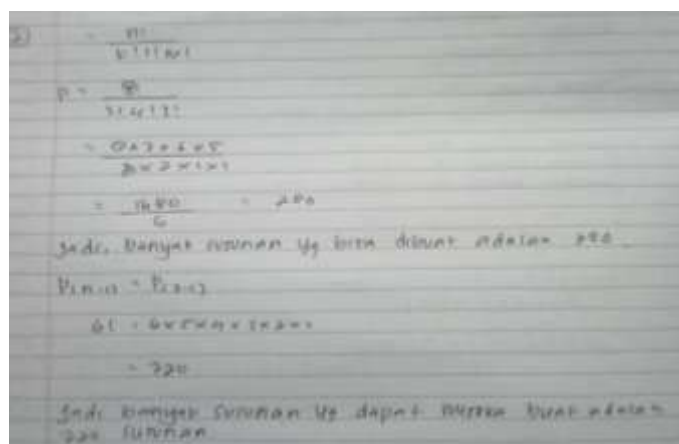 2)
= n!
k! l! m!
P = 8!
3! 4! 1!
= 8 x 7 x 6 x 5
3 x 2 x 1 x 1
= 1680 = 280
6
Jadi, banyak susunan yg bisa dibuat adalah 280
P(n-1) = P(7-1)
6! = 6 x 5 x 4 x 3 x 2 x 1
= 720
Jadi banyak susunan yg dapat mereka buat adalah
720 susunan